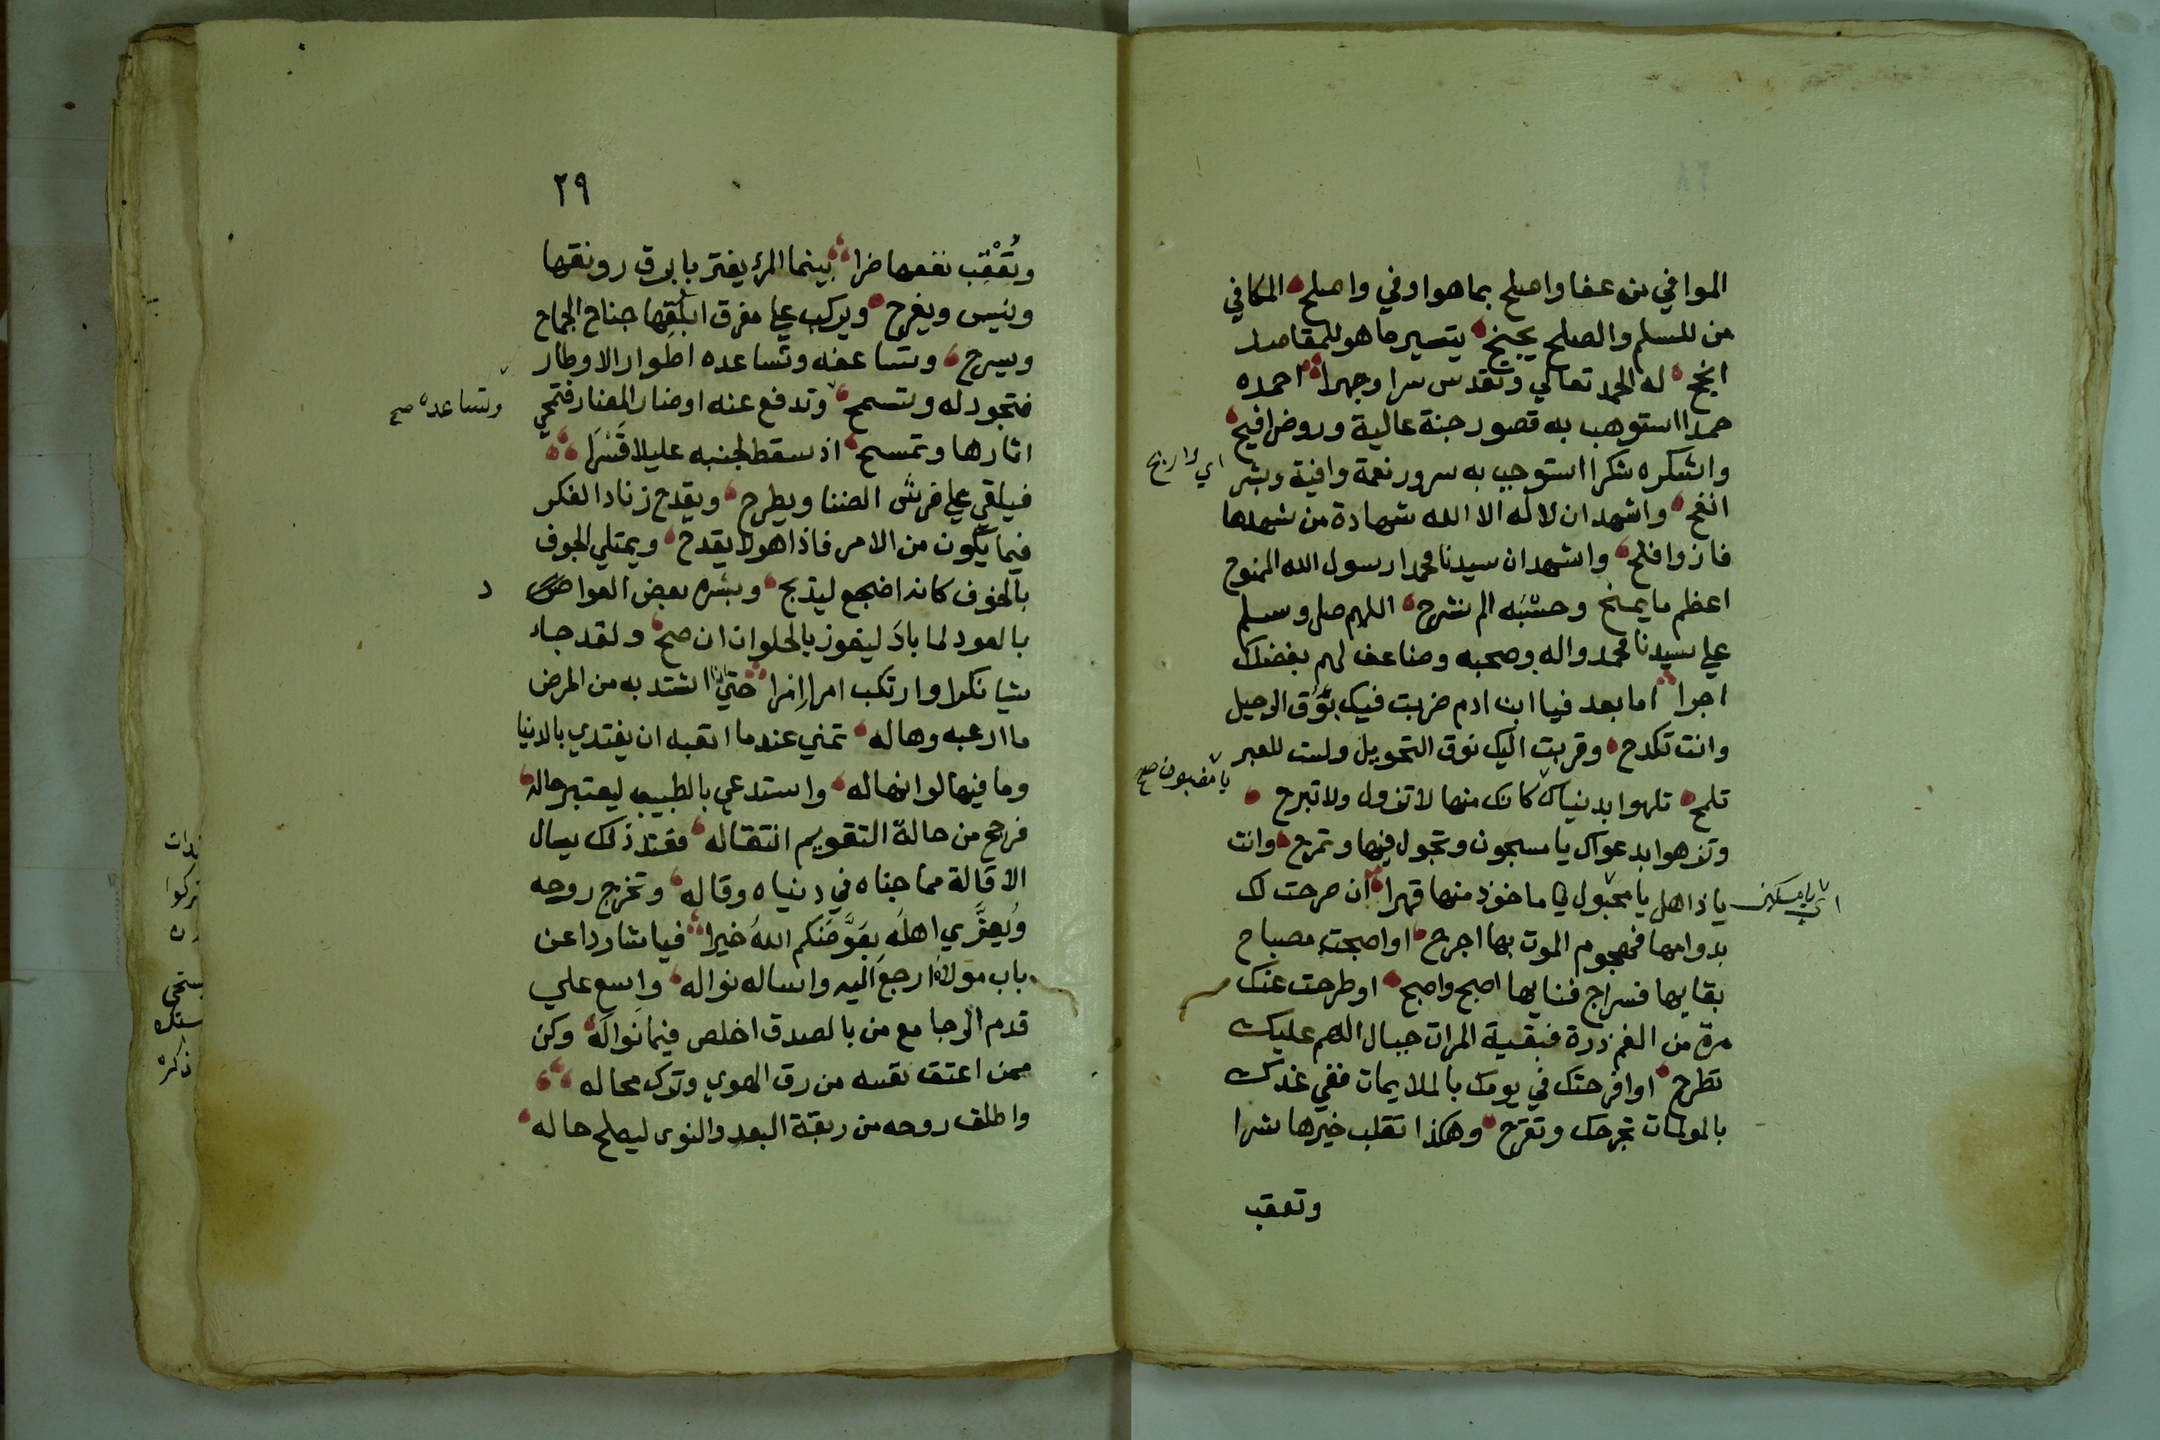 الموافي من عفا واصلح بما هو اوفي واصلح المكافي
من للسلم والصلح يجنح بتسير ما هو للمقاصد
انجح له الحمد تعالي وتقدس سرا وجهرا احمده
حمدا استوهب به قصور جنة عالية وروض افيح
واشكره شكرا استوجب به سرور نعمة وافية وبشر
اي واريح
انفح واشهد ان لا اله الا الله شهادة من شهدها
فاز وافلح واشهد ان سيدنا محمدا رسول الله الممنوح
اعظم ما يمنح وحسبه الم نشرح اللهم صل وسلم
علي سيدنا محمد واله وصحبه وضاعف لهم بفضلك
اجرا اما بعد فيا ابن ادم ضربت فيك بوق الرحيل
وانت تكدح وقربت اليك نوق التحويل ولست للعبر
تلمح تلهوا بدنياك كانك منها لا تزول ولا تبرح
يا مغبون صح
وتزهوا بدعواك يا مسجون وتجول فيها وتمرح وانت
يا ذاهل يا مخبول ماخوذ منها قهرا ان صرحت لك
اي يا مسكين
بدوامها فهجوم الموت بها اجرح او اصبحت مصباح
بقايها فسراج فنايها اصبح واصبح او طرحت عنك
مرة من الغم ذرة فبقية المرات جبال الهم عليك
تطرح او افرحتك في يومك بالملايمات ففي غدك
بالمولمات تجرحك وتقرح وهكذا تقلب خيرها شرا
وتعقب
٢٩
وتعقب نفعها ضرا بينما المرء يغتر بابرق رونقها
ويفرح ويركب علي مفرق ابلقها جناح الجماح
ويسرح وتساعفه وتساعده اطوار الاوطار
فتجود له وتسمح وتدفع عنه اوضار المضار فتمحي
وتساعده صح
اثارها وتمسح اذ سقط لجنبه عليلا قسرا
فيلقي علي فرش الضنا ويطرح ويقدح زناد الفكر
فيما يكون من الامر فاذا هو لا يقدح ويمتلي الجوف
بالخوف كانه اضجع ليذبح وبشره بعض العواد
د
بالعود لما باد ليفوز بالحلوان ان صح ولقد جاء
شيا نكرا وارتكب امرا امرا حتي اذا اشتد به من المرض
ما ارعبه وهاله تمني عندما اتعبه ان يفتدي بالدنيا
وما فيها لو انها له واستدعي بالطبيب ليعتبر حاله
فرجح من حالة التقويم انتقاله فعند ذلك يسال
الاقالة مما جناه في دنياه وقاله وتخرج روحه
ويعزي اهله بعوضكم الله خيرا فيا شاردا عن
باب مولاه ارجع اليه واساله نواله واسع علي
قدم الرجا مع من بالصدق اخلص فيما نوا له وكن
ممن اعتق نفسه من رق الهوي وترك محاله
واطلق روحه من ربقة البعد والنوي ليصلح حاله